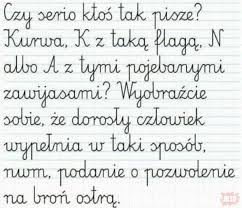 Czy serio ktoś tak pisze?
Kurwa, K z taką flagą, N
albo A z tymi pojebanymi
zawijasami? Wyobraźcie
sobie, że dorosły człowiek
wypełnia w taki sposób,
num, podanie o pozwolenie
na broń ostrą.